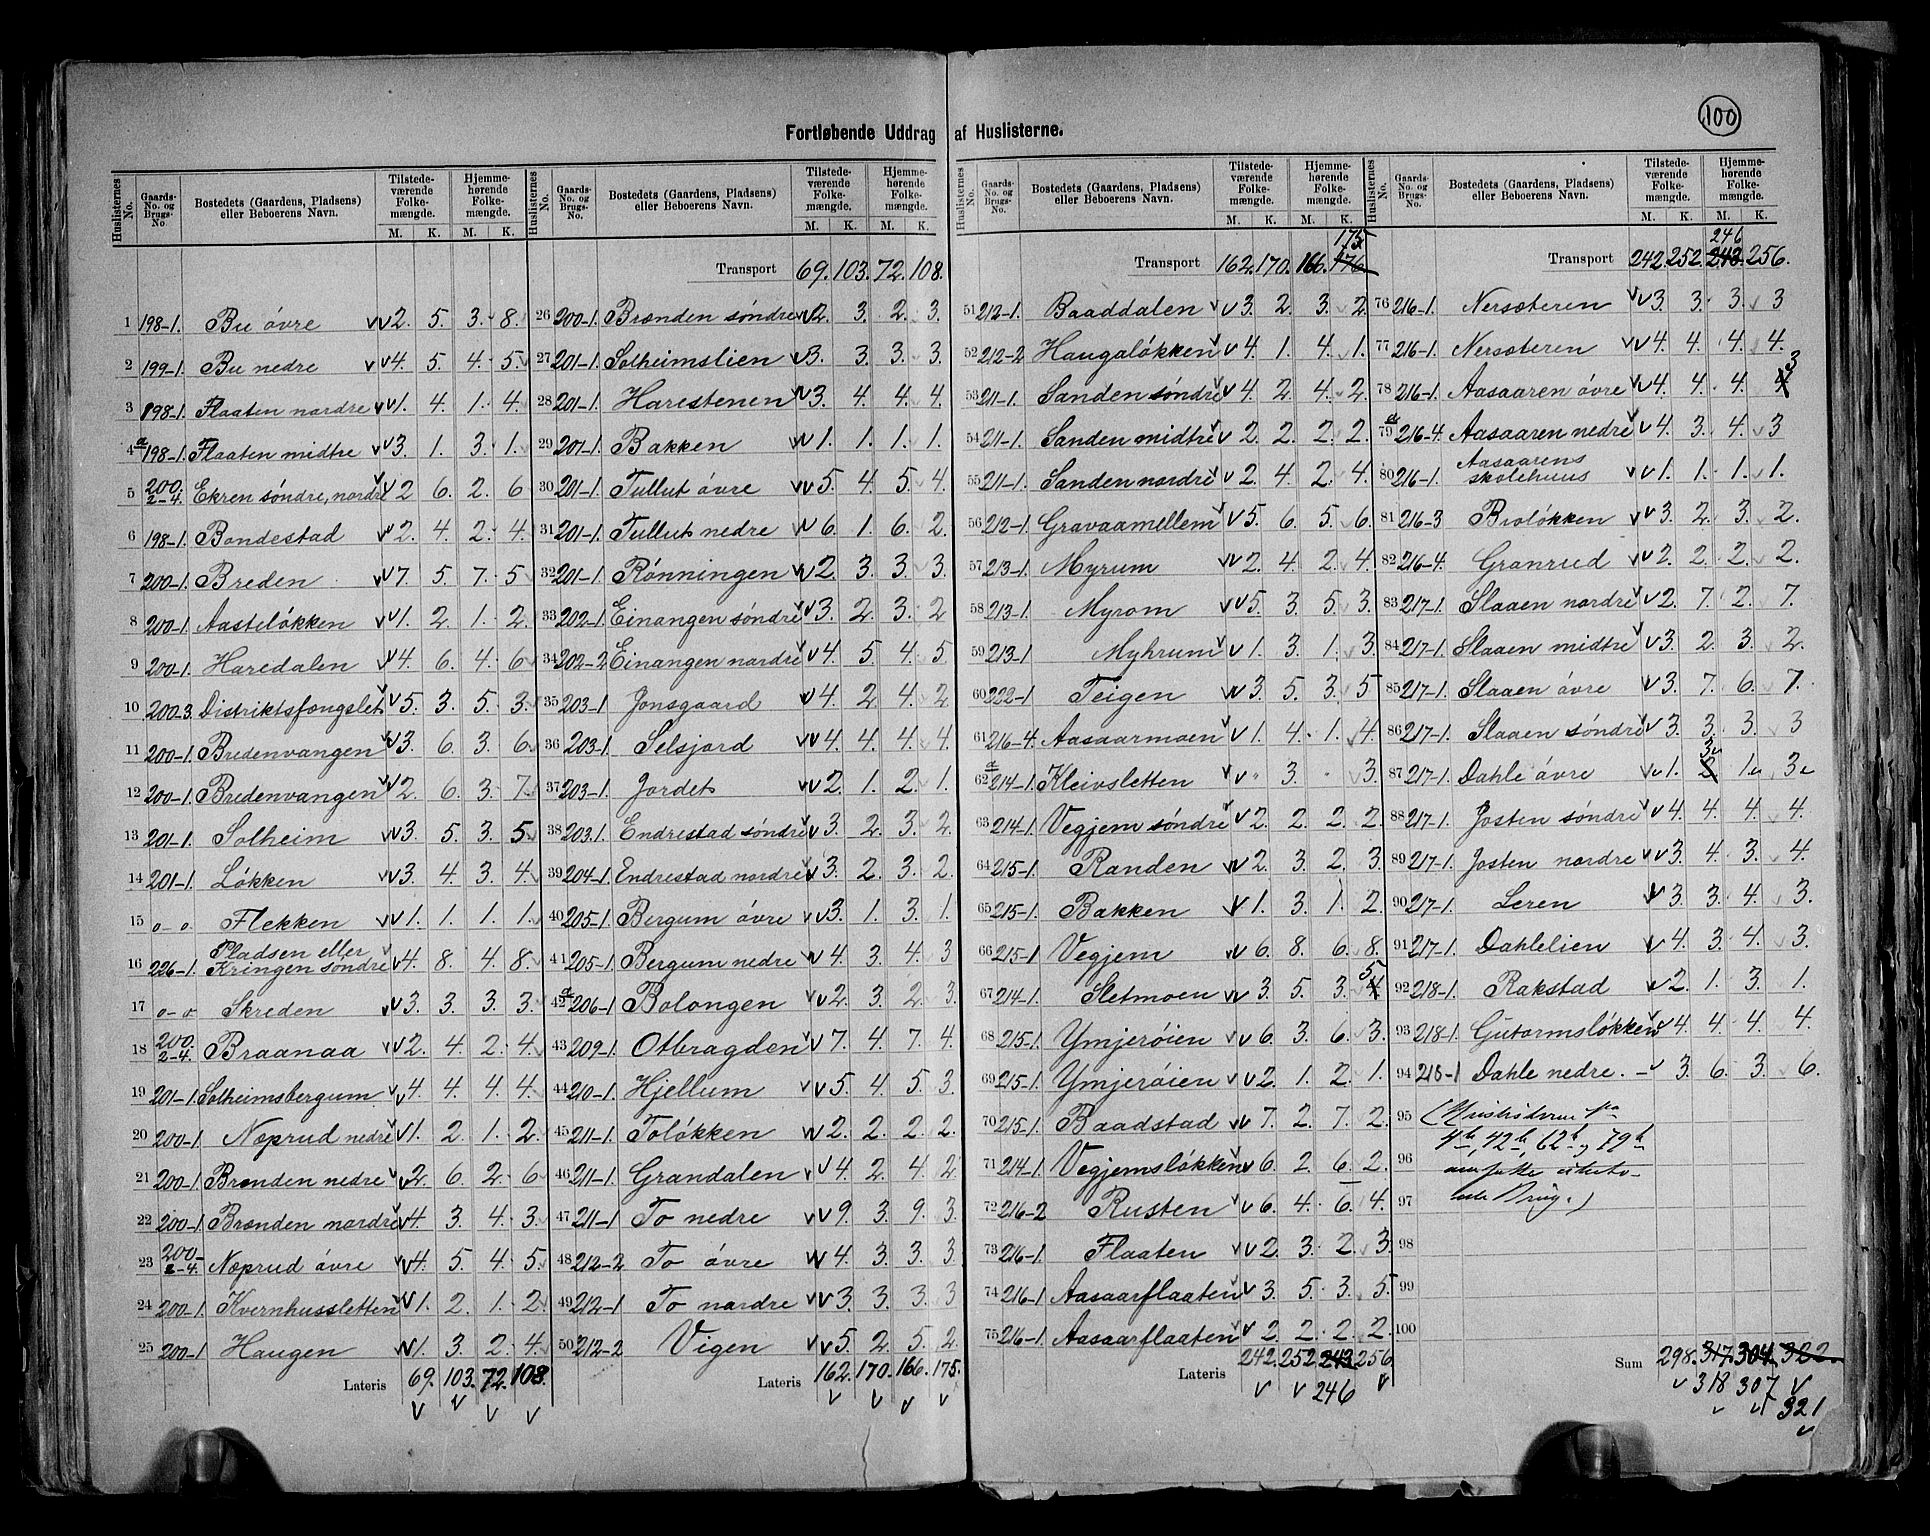 100
Fortløbende Uddrag af Huslisterne.
Huslisternes No. Gaards-No. og Brugs-No. Bostedets (Gaardens, Pladsens) eller Beboerens Navn. Tilstedeværende Folkemængde. M. K. Hjemmehørende Folkemængde. M. K.
1 198-1. Bu øvre 2. 5. 3. 8.
2 199-1. Bu nedre 4. 5. 4. 5.
3 198-1. Flaaten nordre 1. 4. 1. 4.
4a 198-1. Flaaten midtre 3. 1. 3. 1.
5 200. 2-4. Ekren søndre, nordre 2 6. 2. 6
6 198-1. Bondestad 2. 4. 2. 4.
7 200-1. Breden 7. 5. 7. 5
8 200-1. Aasteløkken 1. 2. 1. 2.
9 200-1. Haredalen 4. 6. 4. 6
10 200-3. Distriktsfængslet 5. 3. 5. 3.
11 200-1. Bredenvangen 3. 6. 3. 6
12 200-1. Bredenvangen 2. 6. 3. 7.
13 201-1. Solheim 3. 5. 3. 5
14 201-1. Løkken 3. 4. 3. 4.
15 o-o Flekken 1. 1. 1. 1.
16 226-1. Pladsen eller Kringen søndre 4. 8. 4. 8.
17 o-o Skreden 3. 3. 3. 3.
18 200. 2-4. Braanaa 2. 4. 2. 4.
19 201-1. Solheimsbergum 4. 4. 4. 4.
20 200-1. Næprud nedre 1. 2. 1. 2.
21 200-1. Brænden nedre 2. 6. 2. 6
22 200-1. Brænden nordre 4. 3. 4. 3.
23 200- 2-4. Næprud øvre 4. 5. 4. 5.
24 200-1. Kvernhussletten 1. 2. 1. 2.
25 200-1. Haugen 1. 3. 2. 4.
Lateris 69. 103. 72. 108.
Huslisternes No. Gaards-No. og Brugs-No. Bostedets (Gaardens, Pladsens) eller Beboerens Navn. Tilstedeværende Folkemængde. M. K. Hjemmehørende Folkemængde. M. K.
Transport 69. 103. 72. 108.
26 200-1. Brænden søndre 2. 3. 2. 3.
27 201-1. Solheimslien 3. 3. 3. 3.
28 201-1. Harestenen 3. 4. 4. 4.
29 201-1. Bakken 1. 1. 1. 1.
30 201-1. Tullut øvre 5. 4. 5. 4.
31 201-1. Tullut nedre 6. 1. 6. 2.
32 201-1. Rønningen 2. 3. 3. 3.
33 202-1. Einangen søndre 3. 2. 3. 2
34 202-2 Einangen nordre 4. 5 4. 5
35 203-1 Jonsgaard 4. 2 4. 2
36 203-1. Selsjord 4. 4. 4. 4.
37 203-1. Jordet 2. 1. 2. 1.
38 203.1. Endrestad søndre 3. 2. 3. 2.
39 204-1. Endrestad nordre 3. 2. 3. 2.
40 205-1. Bergum øvre 3. 1. 3. 1.
41 205-1. Bergum nedre 4. 3 4. 3
42a 206-1. Bolongen 2. 3. 2. 3.
43 209-1. Otbragden 7. 4. 7. 4.
44 210-1. Hjellum 5. 4. 5. 3
45 211-1. Toløkken 2. 2. 2. 2.
46 211-1. Grandalen 4. 2. 4. 2.
47 211-1 To nedre 9. 3. 9. 3.
48 212-2 To øvre 4. 3. 3. 3.
49 212-1 To nordre 3. 3. 3. 3
50 212-2 Vigen 5. 2. 5. 2.
Lateris 162. 170. 166. 175.
Huslisternes No. Gaards-No. og Brugs-No. Bostedets (Gaardens, Pladsens) eller Beboerens Navn. Tilstedeværende Folkemængde. M. K. Hjemmehørende Folkemængde. M. K.
175
Transport 162. 170. 166. 176
51 212-1. Baaddalen 3. 2. 3. 2.
52 212-2 Haugaløkken 4. 1. 4. 1.
53 211-1. Sanden søndre 4. 2. 4. 2.
54 211-1. Sanden midtre 2. 2. 2. 2.
55 211-1. Sanden nordre 2. 4. 2. 4.
56 212-1. Gravaamellem 5. 6. 5. 6.
57 213-1. Myrum 2. 4. 2. 4.
58 213-1. Myrom 5. 3. 5. 3.
59 213-1 Myhrum 1. 3. 1. 3.
60 222-1 Teigen 3. 5. 3. 5
61 216-4. Aasaarmoen 1. 4. 1. 4.
62a 214-1. Kleivsletten 3. 3.
63 214-1. Vegjem søndre 2. 2. 2. 2
64 215-1. Randen 2. 3. 2. 3.
65 215-1. Bakken 1. 3. 1. 2
66 215-1 Vegjem 6. 8. 6. 8.
67 214-1. Sletmoen 3. 5. 3. 4 5
68 215-1. Ymjerøien 6. 3. 6. 3.
69 215-1. Ymjerøien 2. 1. 2. 1.
70 215-1. Baadstad 7. 2. 7. 2.
71 214-1. Vegjemsløkken 6. 2. 6. 2.
72 216-2 Rusten 6. 4. 6. 4.
73 216-1. Flaaten 2. 3. 2. 3.
74 216-1. Aasaarflaaten 3. 5. 3. 5.
75 216-1. Aasaarflaaten 2. 2. 2. 2.
Lateris 242. 252. 243 256.
246
Huslisternes No. Gaards-No. og Brugs-No. Bostedets (Gaardens, Pladsens) eller Beboerens Navn. Tilstedeværende Folkemængde. M. K. Hjemmehørende Folkemængde. M. K.
246
Transport 242. 252. 243. 256.
76 216-1. Nersæteren 3. 3. 3. 3
77 216-1. Nersæteren 4. 4. 4. 4.
78 216-1. Aasaaren øvre 4. 4. 4. 4 3
79a 216-4. Aasaaren nedre 4. 3. 4. 3
80 216-1. Aasaarens skolehuus 1. 1. 1. 1.
81 216-3 Broløkken 3. 2. 3. 2.
82 216-4. Granrud 2. 2. 2. 2.
83 217-1. Slaaen nordre 2. 7. 2. 7.
84 217-1. Slaaen midtre 3. 2. 3. 2.
85 217-1. Slaaen øvre 3. 7. 6. 7.
86 217-1. Slaaen søndre 3. 3. 3. 3
87 217-1. Dahle øvre 1. 2 3 1 3
88 217-1. Josten søndre 4. 4. 4. 4.
89 217-1. Josten nordre 3. 4. 3. 4.
90 217-1. Leren 3. 3. 4. 3.
91 217-1. Dahlelien 4. 3. 4. 3.
92 218-1. Rakstad 2. 1. 3. 1.
93 218-1. Gutormsløkken 4. 4. 4. 4.
94 218-1 Dahle nedre. 3. 6. 3. 6.
95 (Huslisterne
96 4b, 42b, 62b, 79b
97
98
99
100
Sum 298. 317. 304. 322.
318 307
321